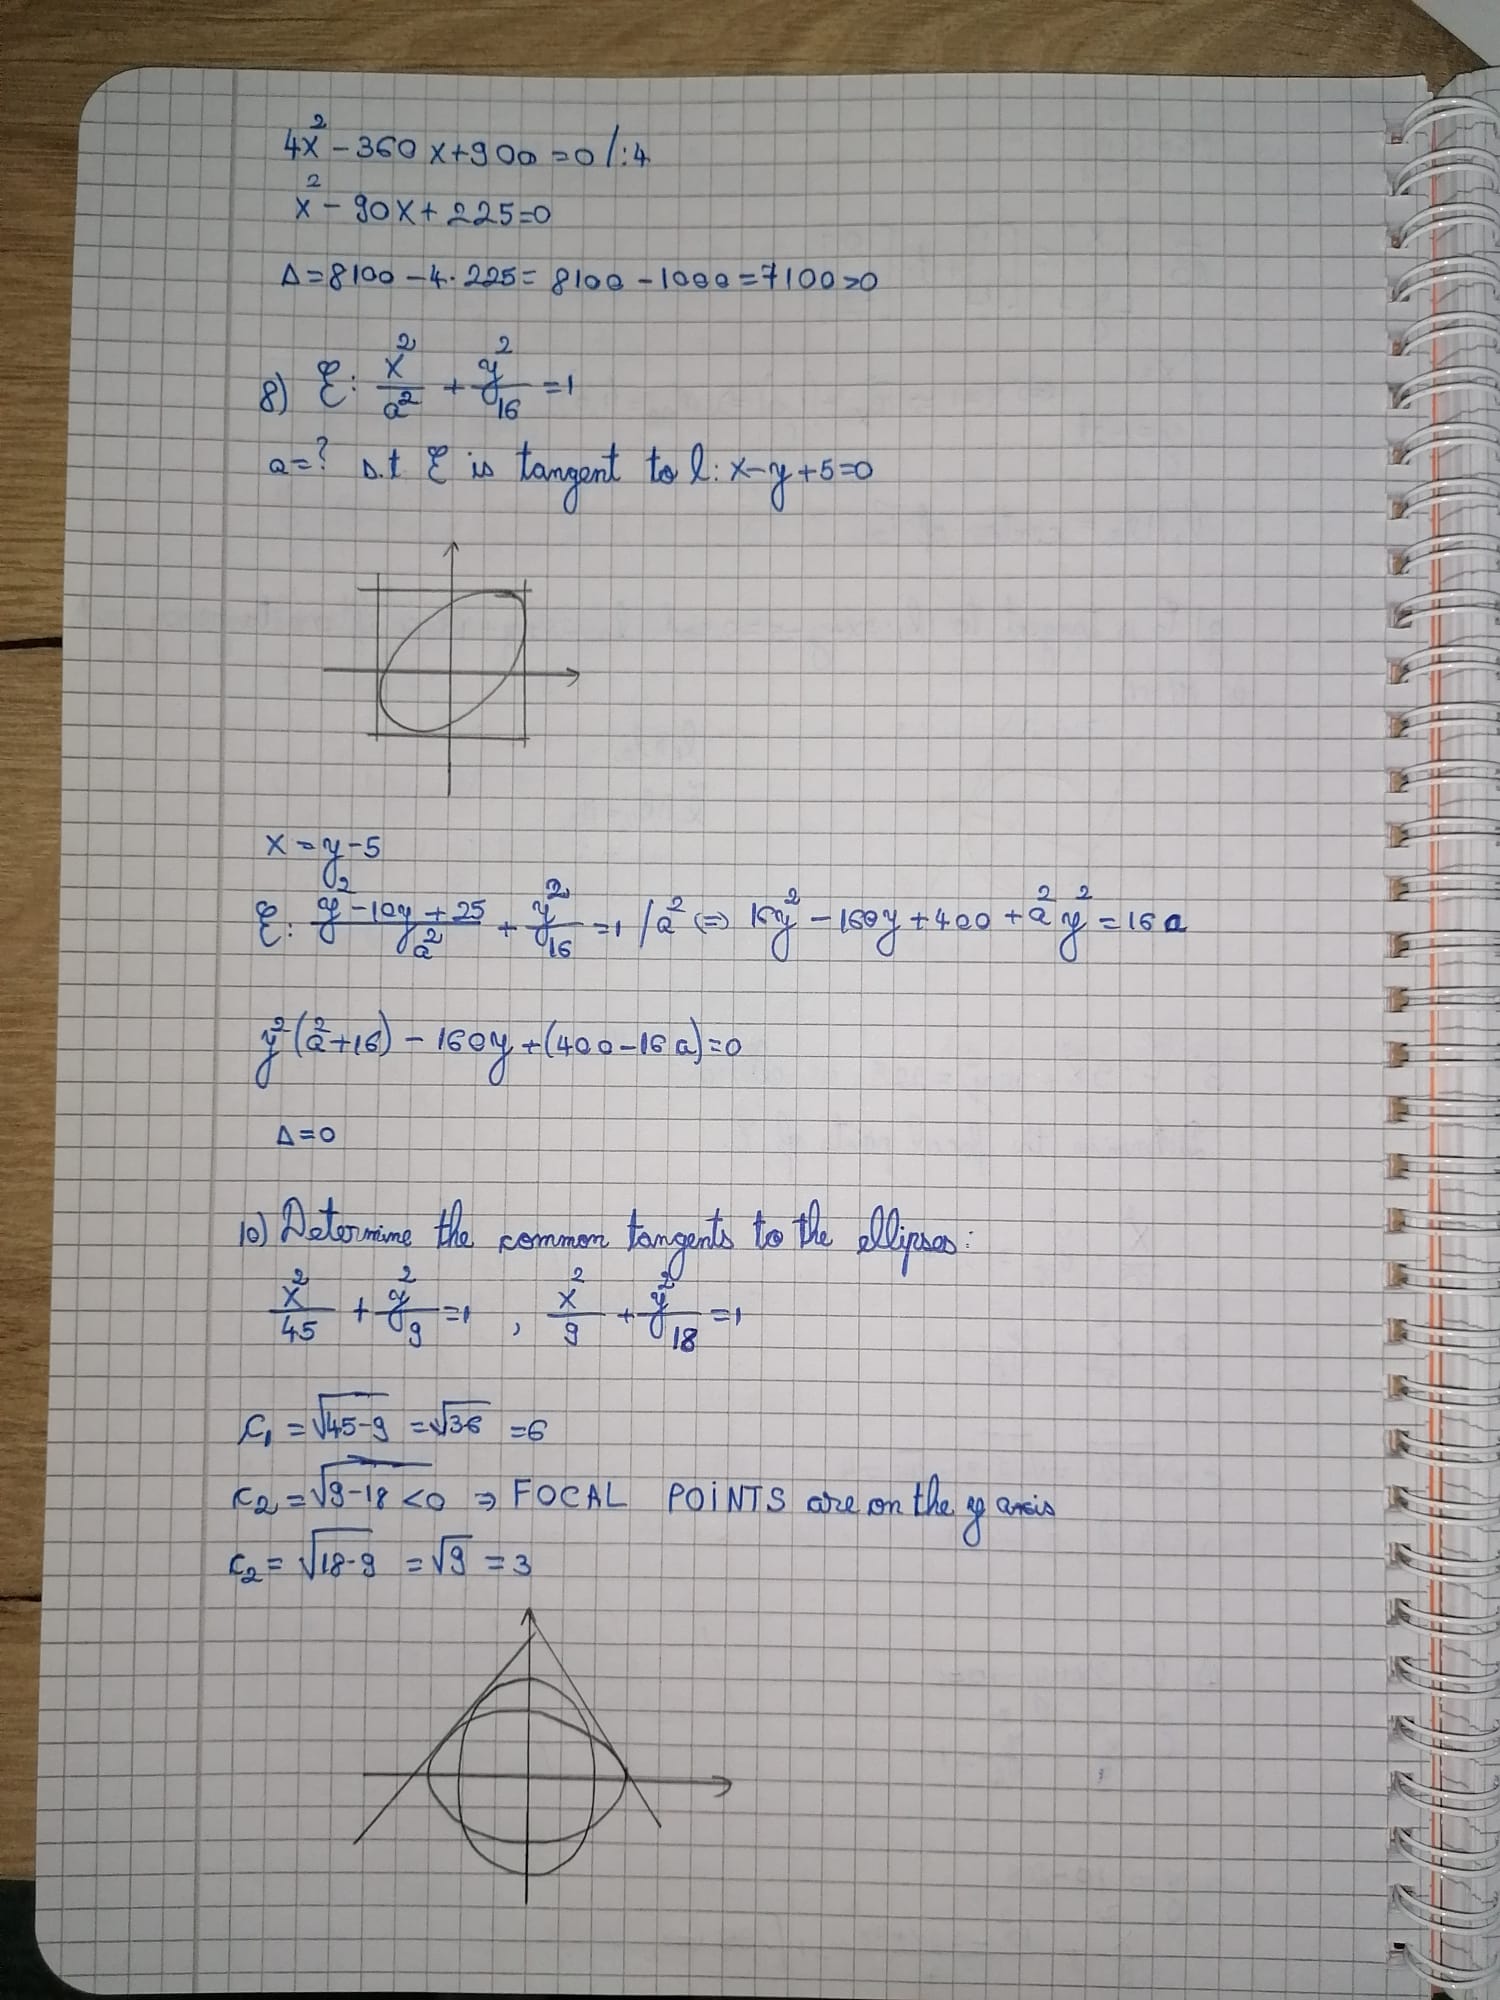 4x² - 360x + 900 = 0 /:4
x² - 90x + 225 = 0
Δ = 8100 - 4·225 = 8100 - 1000 = 7100 > 0
8) ℰ: x²/a² + y²/16 = 1
a = ? s.t ℰ is tangent to l: x - y + 5 = 0
x = y - 5
ℰ: (y² - 10y + 25)/a² + y²/16 = 1 /a² (=) 16y² - 160y + 400 + a²y² = 16a
y²(a² + 16) - 160y + (400 - 16a) = 0
Δ = 0
10) Determine the common tangents to the ellipses:
x²/45 + y²/9 = 1 , x²/9 + y²/18 = 1
C₁ = √(45-9) = √36 = 6
C₂ = √(9-18) < 0 ⇒ FOCAL POINTS are on the y axis
C₂ = √(18-9) = √9 = 3